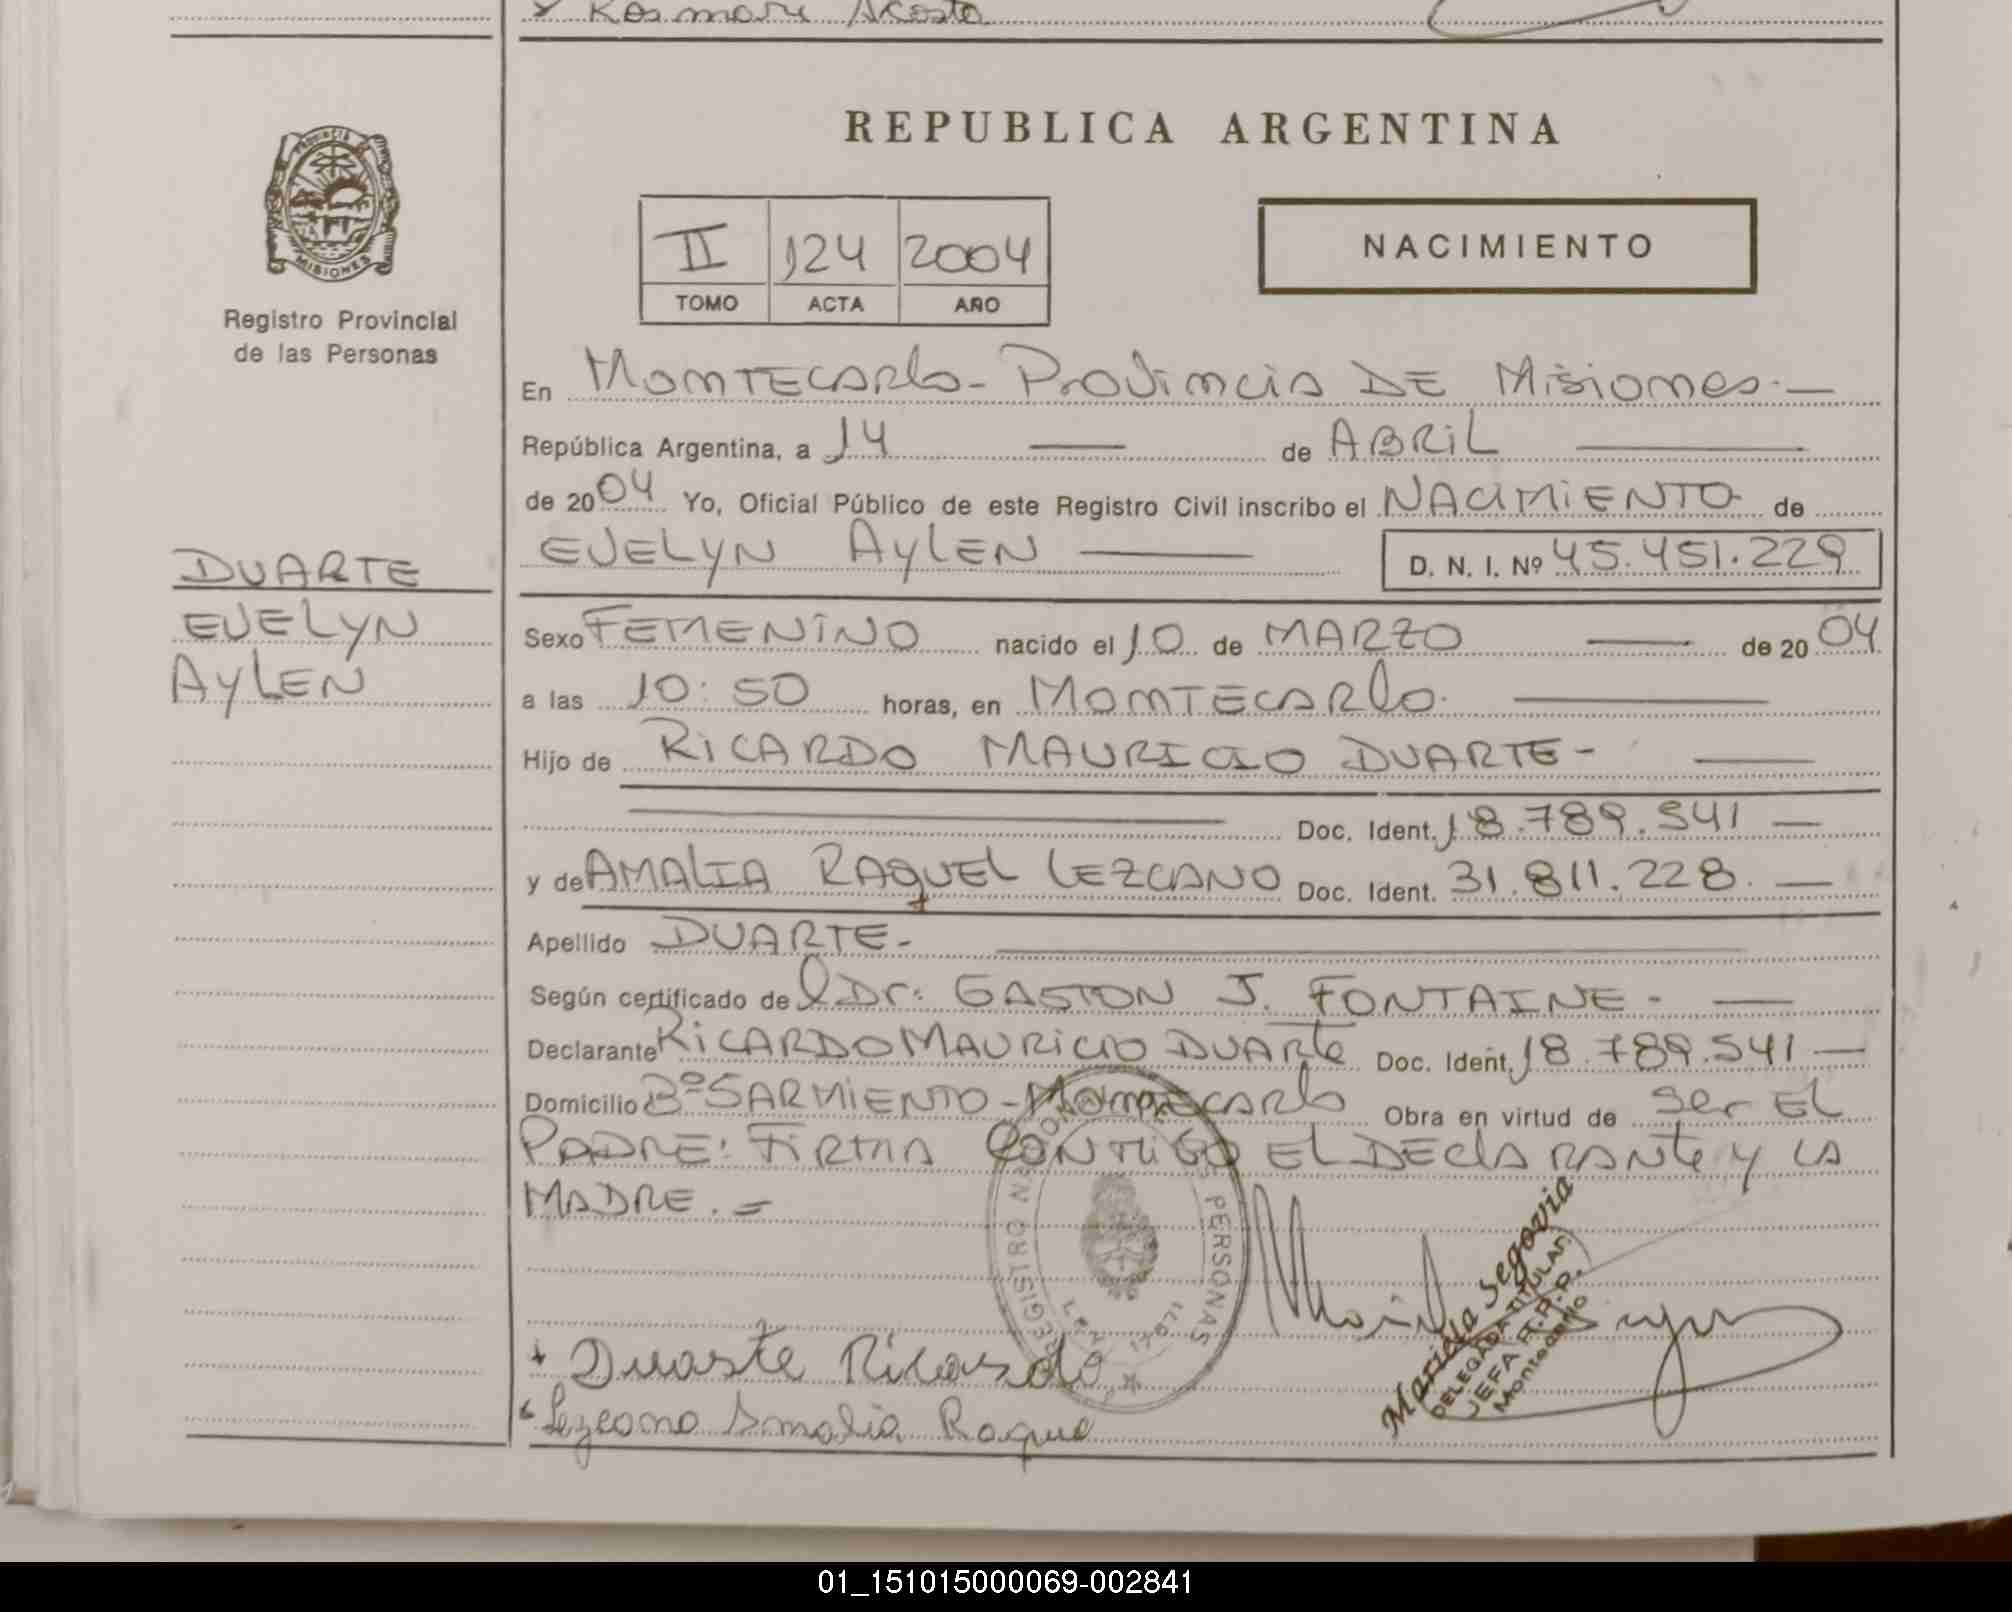 Rosmari Acosta
PROVINCIA
MISIONES
Registro Provincial
de las Personas
REPUBLICA ARGENTINA
II 124 2004
TOMO ACTA AÑO
NACIMIENTO
En MONTECARLO - PROVINCIA DE MISIONES. —
República Argentina, a 14 — de ABRIL —
de 2004 Yo, Oficial Público de este Registro Civil inscribo el NACIMIENTO de
EVELYN AYLEN — D. N. I. Nº 45.451.229
DUARTE
EVELYN
AYLEN
Sexo FEMENINO nacido el 10 de MARZO — de 2004
a las 10:50 horas, en MONTECARLO. —
Hijo de RICARDO MAURICIO DUARTE - —
Doc. Ident. 18.789.541 —
y de AMALIA RAQUEL LEZCANO Doc. Ident. 31.811.228. —
Apellido DUARTE -
Según certificado del Dr: GASTON J. FONTAINE - —
Declarante RICARDO MAURICIO DUARTE Doc. Ident. 18.789.541 —
Domicilio Bº SARMIENTO - MONTECARLO Obra en virtud de ser EL
PADRE: FIRMA CONMIGO EL DECLARANTE y LA
MADRE. =
REGISTRO PERSONAS
Mariela Segovia
DELEGADA TITULAR
JEFA R.P.P.
Montecarlo
Duarte Ricardo
Lezcano Amalia Raquel
01_151015000069-002841